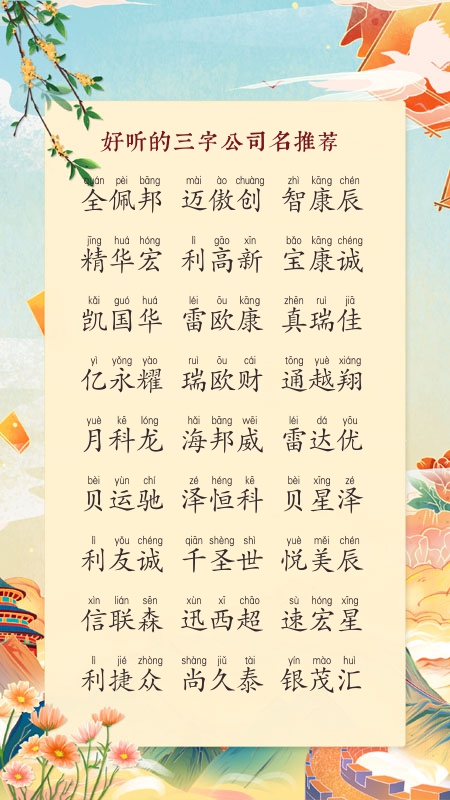 好听的三字公司名推荐
quán pèi bāng mài ào chuàng zhì kāng chén
全佩邦 迈傲创 智康辰
jīng huá hóng lì gāo xīn bǎo kāng chéng
精华宏 利高新 宝康诚
kǎi guó huá léi ōu kāng zhēn ruì jiā
凯国华 雷欧康 真瑞佳
yì yǒng yào ruì ōu cái tōng yuè xiáng
亿永耀 瑞欧财 通越翔
yuè kē lóng hǎi bāng wēi léi dá yōu
月科龙 海邦威 雷达优
bèi yùn chí zé héng kē bèi xīng zé
贝运驰 泽恒科 贝星泽
lì yǒu chéng qiān shèng shì yuè měi chén
利友诚 千圣世 悦美辰
xìn lián sēn xùn xī chāo sù hóng xīng
信联森 迅西超 速宏星
lì jié zhòng shàng jiǔ tài yín mào huì
利捷众 尚久泰 银茂汇